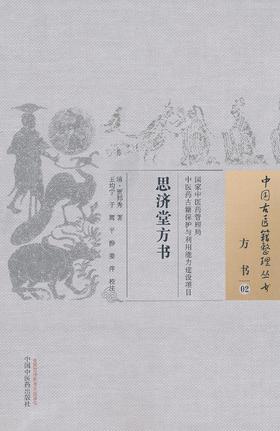 中国古医籍整理丛书
方书
02
国家中医药管理局
中医药古籍保护与利用能力建设项目
思济堂方书
清·贾邦秀 著
中国中医药出版社